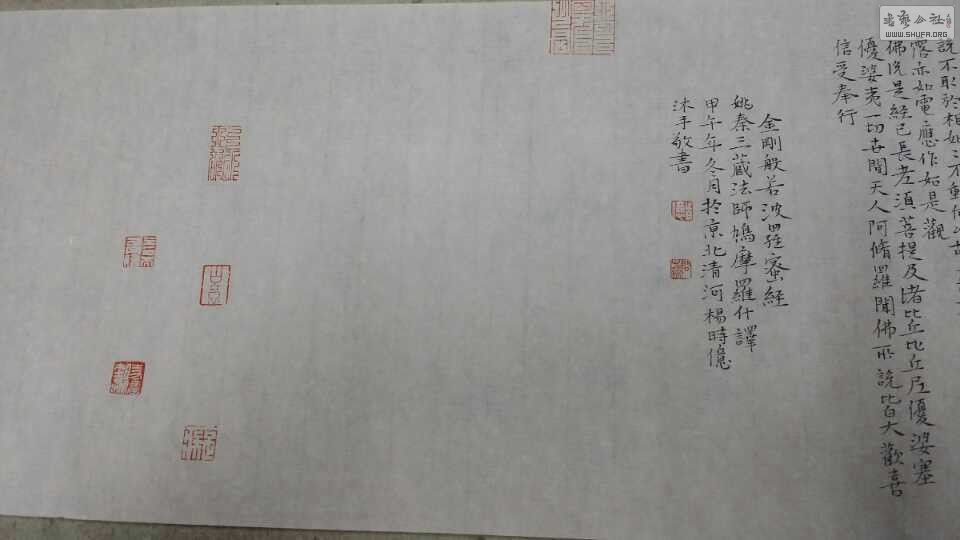 說不取於相如如不動何以故
露亦如電應作如是觀
佛說是經已長老須菩提及諸比丘比丘尼優婆塞
優婆夷一切世間天人阿脩羅聞佛所說皆大歡喜
信受奉行
金剛般若波羅蜜經
姚秦三藏法師鳩摩羅什譯
甲午年冬月於京北清河楊時億
沐手敬書
書藝公社
WWW.SHUFA.ORG